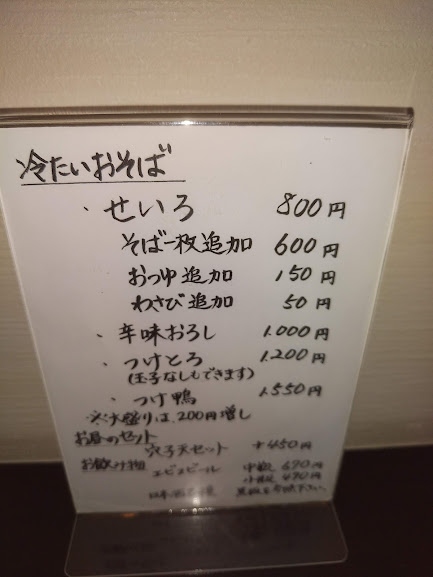 冷たいおそば
・せいろ 800円
そば一枚追加 600円
おつゆ追加 150円
わさび追加 50円
・辛味おろし 1.000円
・つけとろ 1.200円
(玉子なしもできます)
・つけ鴨 1.550円
※大盛りは、200円増し
お昼のセット
穴子天セット +450円
お飲み物 エビスビール 中瓶 690円
小瓶 490円
日本酒